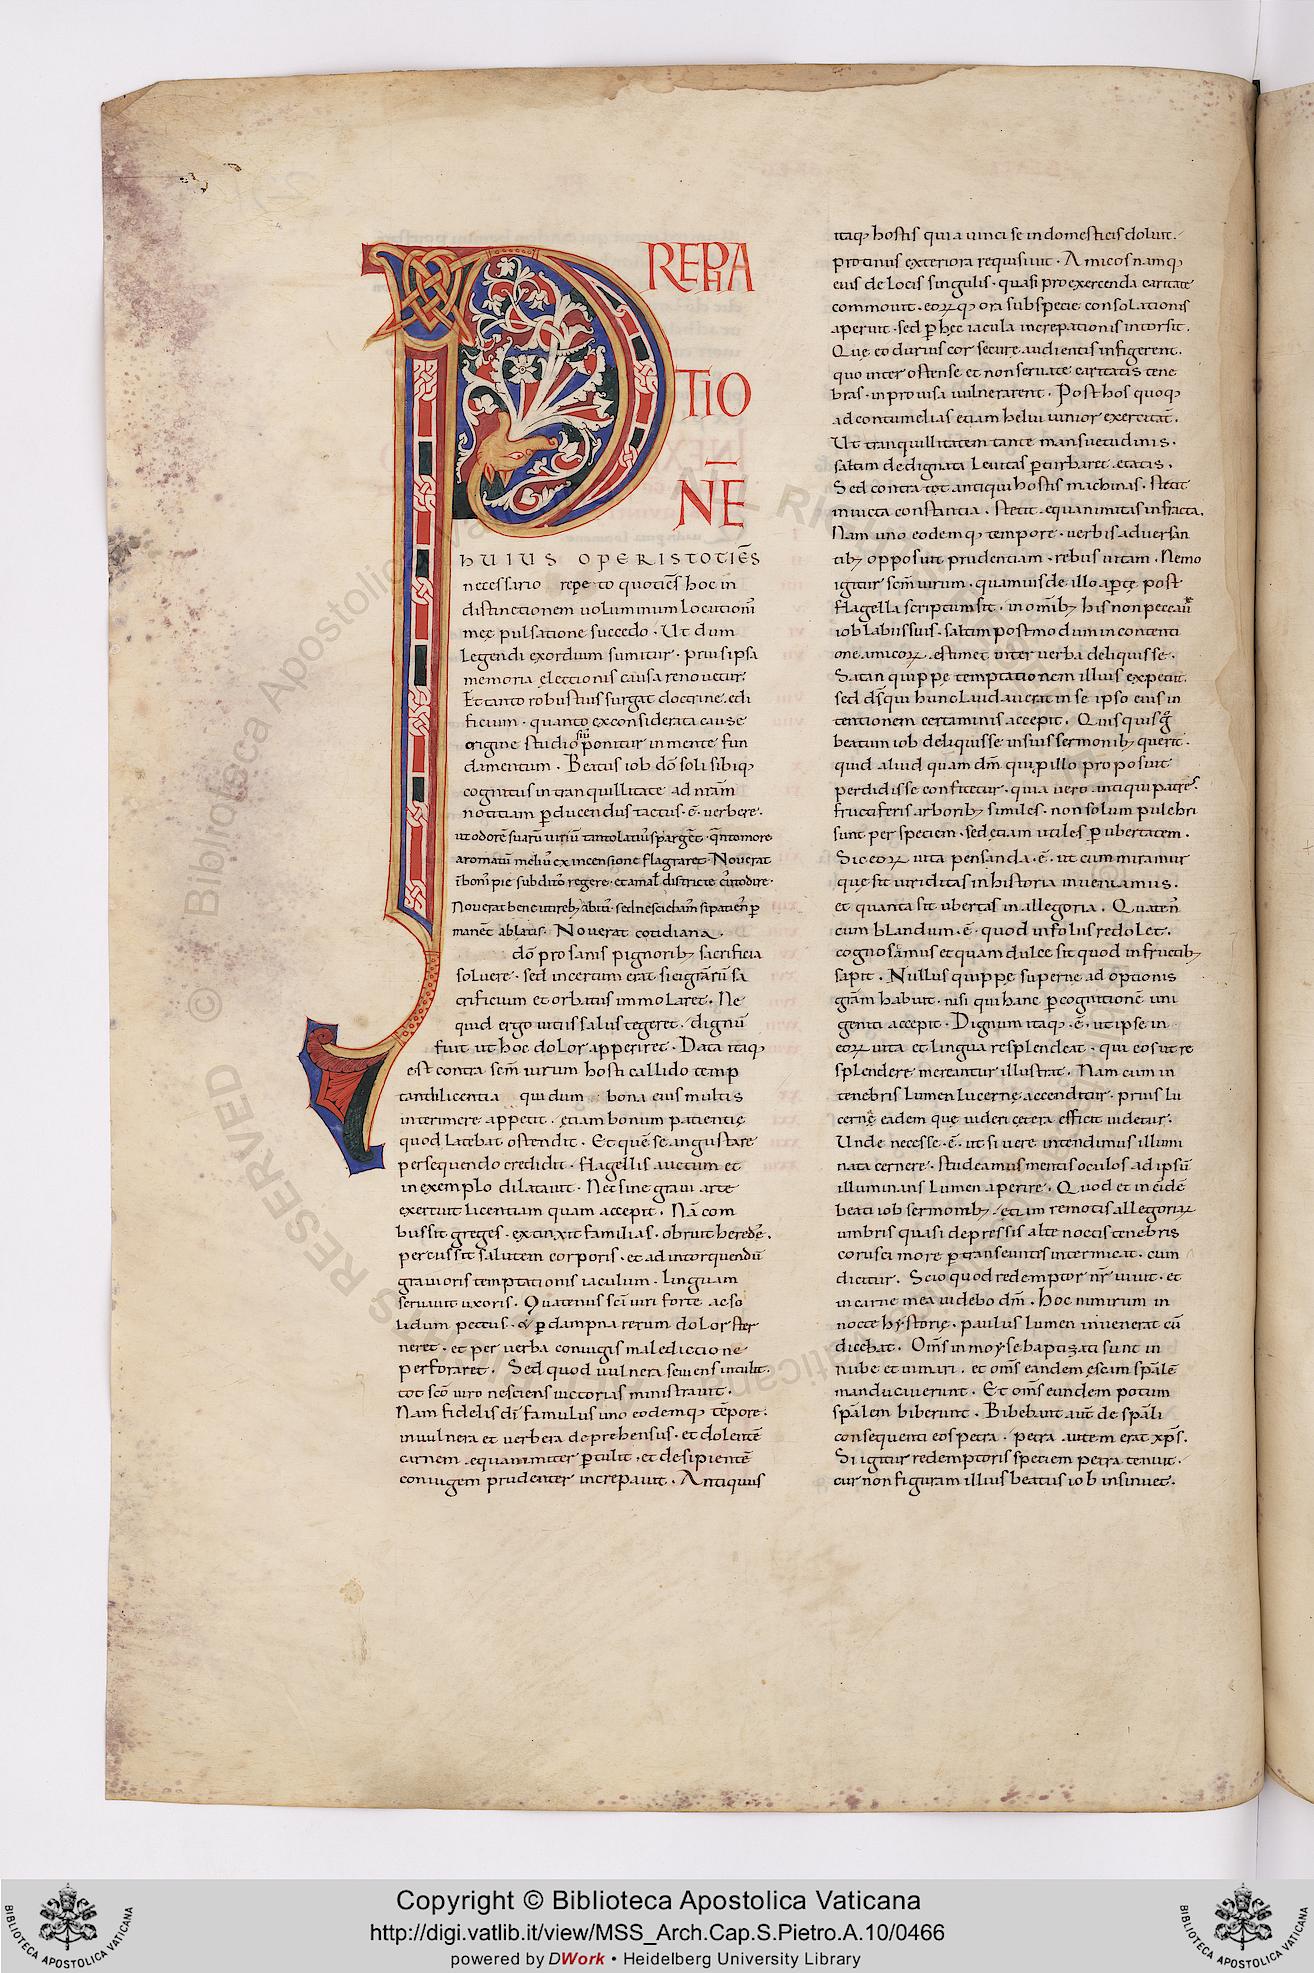 PREPHA
TIO
NĒ
HUIUS OPERIS TOTIĒS
necessario repeto quotiēs hoc in
distinctionem uoluminum locutionis
meę pulsatione succedo · Ut dum
legendi exordium sumitur · prius ipsa
memoria electionis causa renouetur.
Et tanto robustius surgat doctrine edi
ficium · quanto ex considerata cause
origine studiosius ponitur in mente fun
damentum · Beatus iob dō soli sibiq;
cognitus in tranquillitate ad nrām
notitiam ꝑducendus tactus · ē · uerbere.
ut odorē suarū uiriū tanto latius spargeret · quanto more
aromatū melius ex incensione flagraret · Nouerat
Nouerat bene uti reb; sed nesciebam si patienꝰ ꝑ
manēt ablatis · Nouerat cotidiana
dō pro sanis pignorib; sacrificia
soluere · sed incertum erat si ei grārū sa
crificium et orbatus immolaret. Ne
quid ergo uitii salus tegeret · dignū
fuit ut hoc dolor apperiret · Data itaq;
est contra sēm uirum hosti callido temp
tandi licentia qui dum bona eius multis
interimere appetit · etiam bonum patientię
quod latebat ostendit · Et quē se angustare
persequendo credidit · flagellis auctum et
in exemplo dilatauit · Nec sine graui arte
exercuit licentiam quam accepit. Nā com
bussit greges · extinxit familias · obruit heredes.
percussit salutem corporis · et ad intorquendū
grauioris temptationis iaculum · linguam
seruauit uxoris · Quatenus scī uiri forte ac so
lidum pectus · & ꝑ dampna rerum dolor ster
neret · et per uerba coniugis maledictione
perforaret. Sed quod uulnera seuiens intulit.
tot scō uiro nesciens uictorias ministrauit.
Nam fidelis dī famulus uno eodemq; tēpore.
in uulnera et uerbera deprehensus · et dolentē
carnem equanimiter ꝑtulit · et desipientē
coniugem prudenter increpauit · Antiquus
itaq; hostis quia uinci se in domesticis doluit.
protinus exteriora requisiuit · Amicos namq;
eius de locis singulis · quasi pro exercenda caritate
commouit · eorꝝ q; ora sub specie consolationis
aperuit · sed ꝑ hec iacula increpationis intorsit.
Quę eo durius cor secure audientis infigerent.
quo inter ostense et non seruate caritatis tene
bras · inprouisa uulnerarent. Post hos quoq;
ad contumelias etiam heliu iunior exercitat̄.
Ut tranquillitatem tante mansuetudinis.
saltim dedignata leuitas ꝑturbaret etatis.
Sed contra tot antiqui hostis machinas · stetit
inuicta constantia · stetit equanimitas infracta.
Nam uno eodemq; tempore · uerbis aduersan
tib; opposuit prudentiam · rebus uitam · Nemo
igitur sēm uirum · quamuis de illo aꝑte post
flagella scriptum sit · in omīb; his non peccauit
iob labiis suis · saltim postmodum in contenti
one amicorꝝ · estimet inter uerba deliquisse.
Satan quippe temptationem illius expetiit.
sed dīs qui hunc laudauerat in se ipso eius in
tentionem certaminis accepit. Quisquis g̊
beatum iob deliquisse in suis sermonib; querit.
quid aliud quam dm̄ qui ꝑ illo proposuit
perdidisse confitetur · quia uero antiqui patres
fructiferis arborib; similes · non solum pulchri
sunt per speciem · sed etiam utiles ꝑ ubertatem.
Sic eorꝝ uita pensanda · ē · ut cum miramur
quę sit uiriditas in historia inueniamus.
et quanta sit ubertas in allegoria. Quaten̄
cum blandum · ē · quod in foliis redolet.
cognoscamus et quam dulce sit quod in fructib;
sapit. Nullus quippe superne adoptionis
grām habuit · nisi qui hanc ꝑ cognitionē uni
geniti accepit · Dignum itaq; · ē · ut ipse in
eorꝝ uita et lingua resplendeat · qui eos ut re
splendere mereantur illustrat. Nam cum in
tenebris lumen lucerne accenditur · prius lu
cernę eadem que uideri cetera efficit uidetur.
Unde necesse · ē · ut si uere intendimus illumi
nata cernere · studeamus mentis oculos ad ipsū
illuminans lumen aperire. Quod et in eidē
beati iob sermonib; · etiam remotis allegoriarꝝ
umbris quasi depressis alte noctis tenebris
corusci more ꝑtranseuntis intermicat · cum
dicitur. Scio quod redemptor nr̄ uiuit · et
in carne mea uidebo dm̄ · hoc nimirum in
nocte hystorię · paulus lumen inuenerat cū
dicebat. Om̄s in moyse baptizati sunt in
nube et in mari · et om̄s eandem escam spālē
manducauerunt. Et om̄s eundem potum
spālem biberunt · Bibebant aut̄ de spāli
consequenti eos petra · petra autem erat xp̄s.
Si igitur redemptoris speciem petra tenuit.
cur non figuram illius beatus iob insinuet.
© Biblioteca Apostolica Vaticana
ALL RIGHTS RESERVED
Copyright © Biblioteca Apostolica Vaticana
http://digi.vatlib.it/view/MSS_Arch.Cap.S.Pietro.A.10/0466
powered by DWork • Heidelberg University Library
BIBLIOTECA APOSTOLICA VATICANA
BIBLIOTECA APOSTOLICA VATICANA